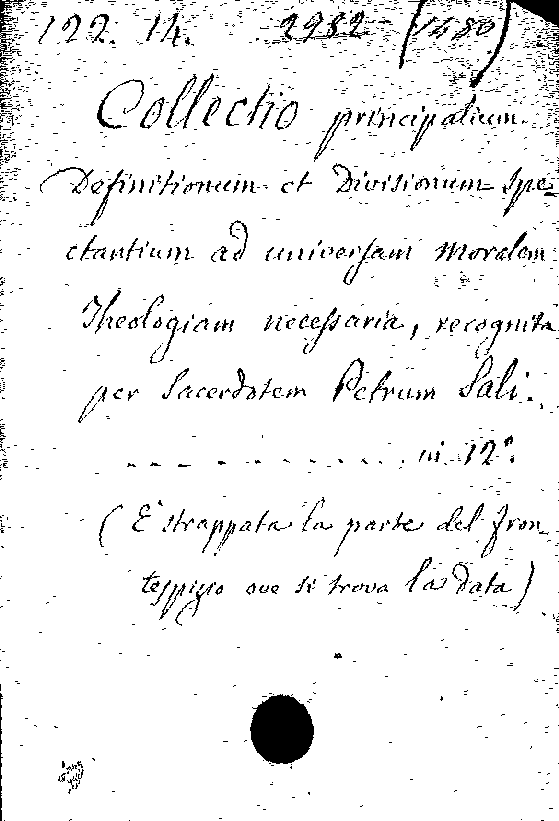 122. 14. 2982 (1480)
Collectio principalium
Definitionum et Divisionum spe-
ctantium ad universam moralem
Theologiam necessaria, recognita
per Sacerdotem Petrum Sali.
. . . . . . . . . . . in 12°.
(È strappata la parte del fron-
tespizio ove si trova la data)